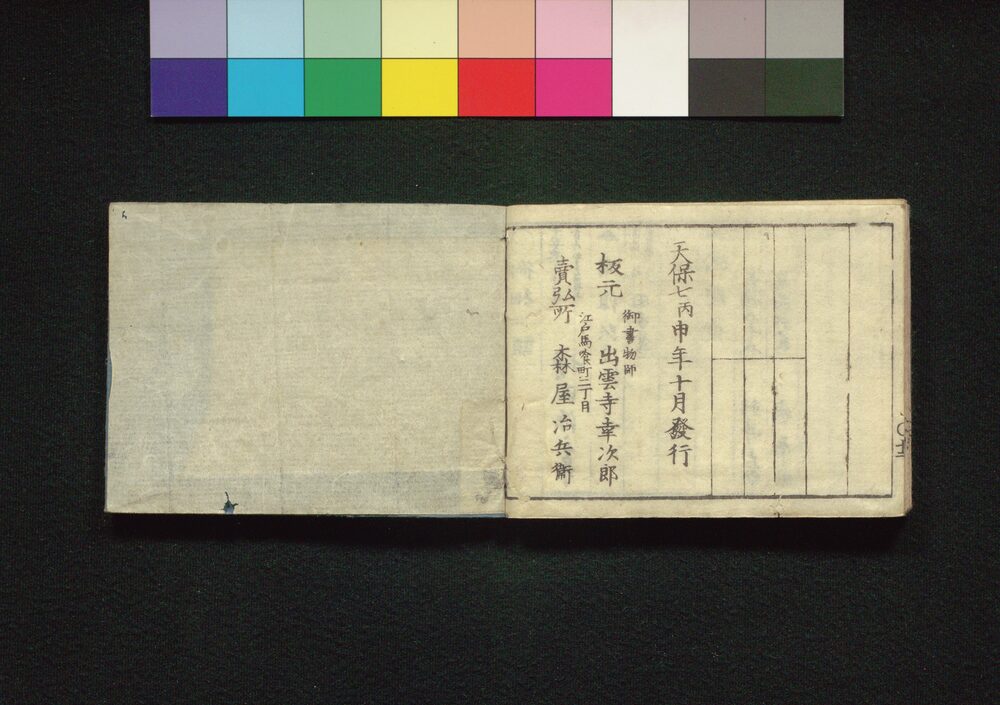 天保七丙申年十月發行
御書物師
板元 出雲寺幸次郎
江戸馬喰町二丁目
賣弘所 森屋冶兵衛